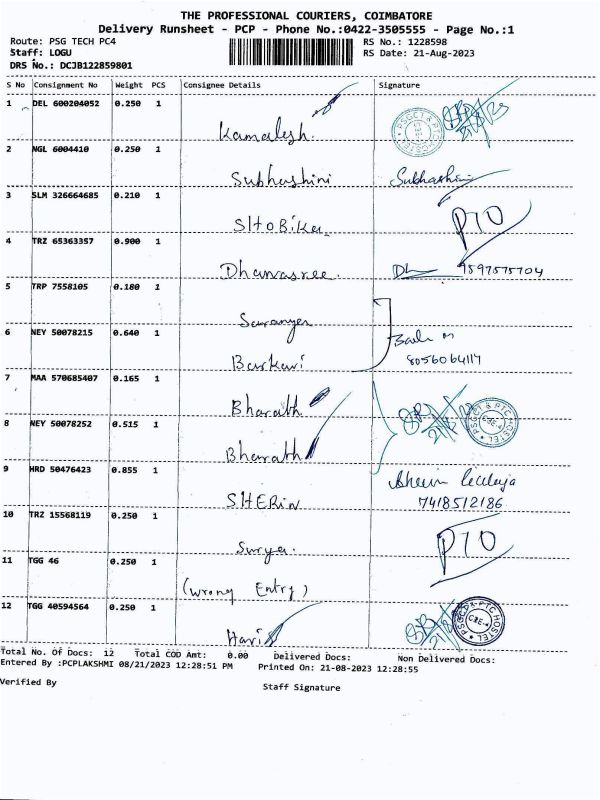 THE PROFESSIONAL COURIERS, COIMBATORE
Delivery Runsheet - PCP - Phone No.:0422-3505555 - Page No.:1
Route: PSG TECH PC4 RS No.: 1228598
Staff: LOGU RS Date: 21-Aug-2023
DRS No.: DCJB122859801
S No Consignment No Weight PCS Consignee Details Signature
1 DEL 600204052 0.250 1
Kamalesh.
2 NGL 6004410 0.250 1
Subhashini Subhashini
3 SLM 326664685 0.210 1
SHOBika PTO
4 TRZ 65363357 0.900 1
Dhanasree. 9597575704
5 TRP 7558105 0.180 1
Saranya
6 NEY 50078215 0.640 1
8056064117
7 MAA 570685407 0.165 1
Bharath
8 NEY 50078252 0.515 1
Bharath
9 HRD 50476423 0.855 1
SHERIN 7418512186
10 TRZ 15568119 0.250 1
Surya. PTO
11 TGG 46 0.250 1
(Wrong Entry)
12 TGG 40594564 0.250 1
Haris
Total No. Of Docs: 12 Total COD Amt: 0.00 Delivered Docs: Non Delivered Docs:
Entered By :PCPLAKSHMI 08/21/2023 12:28:51 PM Printed On: 21-08-2023 12:28:55
Verified By Staff Signature